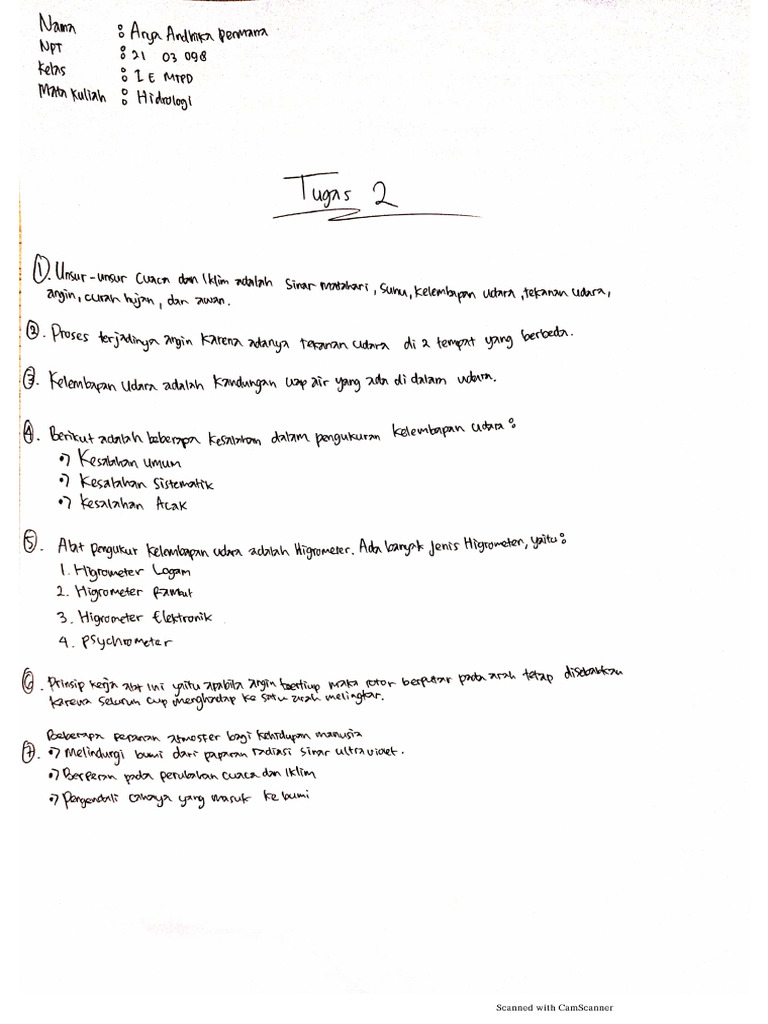 Nama : Arya Andhika Permana
NPT : 21 03 098
Kelas : I E MTPD
Mata Kuliah : Hidrologi
Tugas 2
1. Unsur-unsur Cuaca dan Iklim adalah Sinar matahari, Suhu, Kelembapan udara, tekanan udara,
angin, curah hujan, dan awan.
2. Proses terjadinya angin karena adanya tekanan udara di 2 tempat yang berbeda.
3. Kelembapan Udara adalah kandungan uap air yang ada di dalam udara.
4. Berikut adalah beberapa kesalahan dalam pengukuran kelembapan udara :
•) Kesalahan umum
•) Kesalahan Sistematik
•) Kesalahan Acak
5. Alat pengukur kelembapan udara adalah Higrometer. Ada banyak jenis Higrometer, yaitu :
1. Higrometer Logam
2. Higrometer Rambut
3. Higrometer Elektronik
4. Psychrometer
6. Prinsip kerja alat ini yaitu apabila angin bertiup maka rotor berputar pada arah tetap disebabkan
karena seluruh cup menghadap ke satu arah melingkar.
Beberapa peranan atmosfer bagi kehidupan manusia
7. •) Melindungi bumi dari paparan radiasi sinar ultraviolet.
•) Berperan pada perubahan cuaca dan Iklim
•) Pengendali cahaya yang masuk ke bumi
Scanned with CamScanner